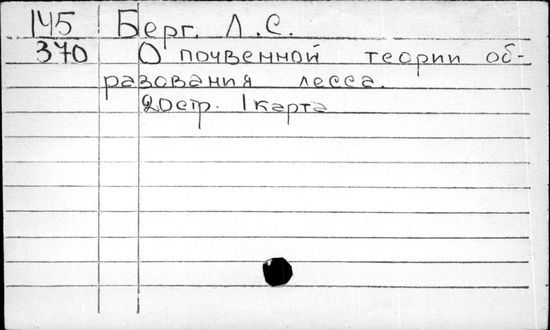 145 Берг. Л.С.
370 О почвенной теории об-
разования лесса.
20стр. 1 карта